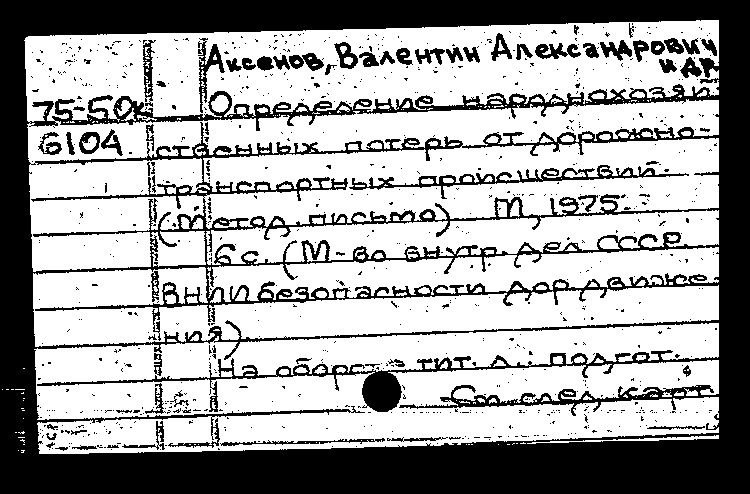 Аксенов, Валентин Александрович
и др.
75-50к Определение народнохозяй-
6104 ственных потерь от дорожно-
транспортных происшествий.
(Метод. письмо) М, 1975.
6 с. (М-во внутр. дел СССР.
ВНИИ безопасности дор. движе-
ния)
На обороте тит. л.: подгот.
См след. карт.